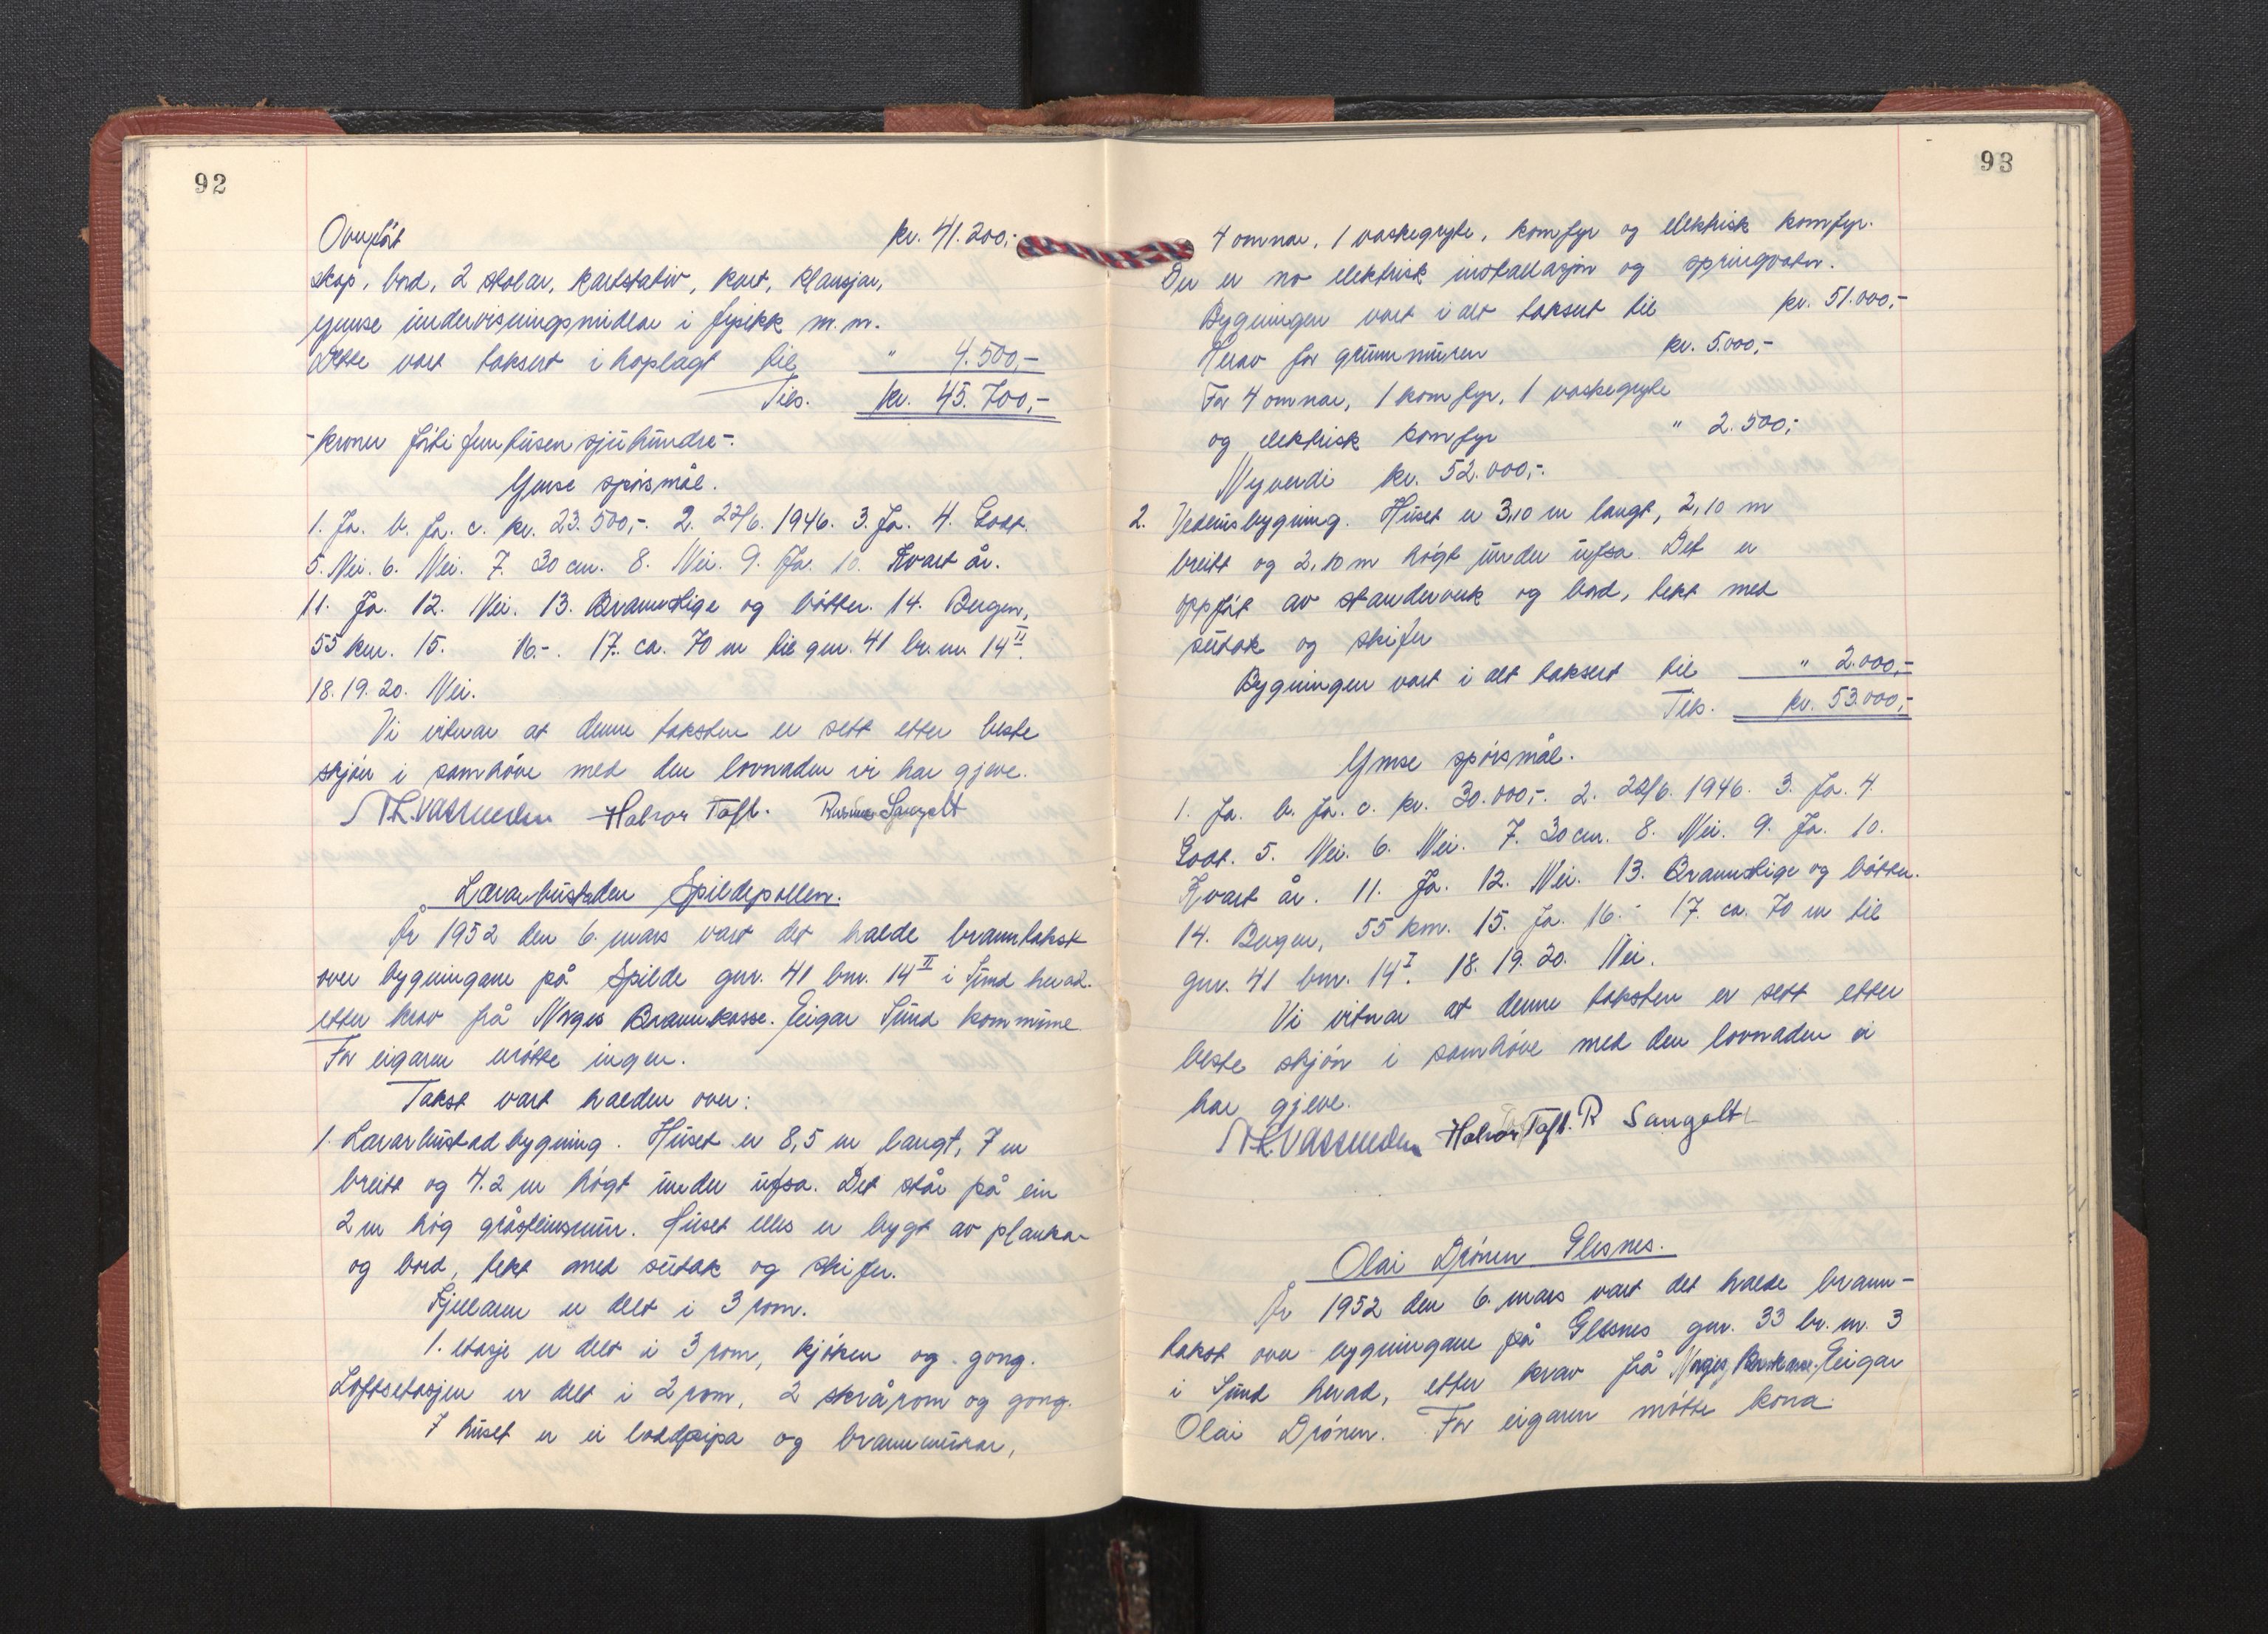 92
Overført kr. 41.200,-
skap, bord, 2 stolar, kartstativ, kart, plansjar,
ymse undervisningsmidlar i fysikk m.m.
Dette vart taksert i hoplagt til " 4.500,-
Tils. kr. 45.700,-
- kroner førti femtusen sjuhundre -.
Ymse spørsmål.
1. Ja. b. Ja. c. kr. 23.500,-. 2. 22/6. 1946. 3. Ja. 4. Godt.
5. Nei. 6. Nei. 7. 30 cm. 8. Nei. 9. Ja. 10. Kvart år.
11. Ja. 12. Nei. 13. Brannstige og bøtter. 14. Bergen,
55 km. 15. 16.-. 17. ca. 70 m til gnr. 41 br.nr. 14 II.
18. 19. 20. Nei.
Vi vitnar at denne taksten er sett etter beste
skjøn i samhøve med den lovnaden vi har gjeve.
Halvor Toft. Sangolt
Lærarbustaden Spildepollen.
År 1952 den 6. mars vart det halde branntakst
over bygningane på Spilde gnr. 41 bnr. 14 II i Sund herad.
etter krav frå Norges Brannkasse. Eigar Sund kommune.
For eigaren møtte ingen.
Takst vart halden over:
1. Lærarbustadbygning. Huset er 8,5 m langt, 7 m
breitt og 4.2 m høgt under ufsa. Det står på ein
2 m høg gråsteinsmur. Huset elles er bygt av plankar
og bord, tekt med sutak og skifer.
Kjellaren er delt i 3 rom.
1. etasje er delt i 3 rom, kjøken og gong.
Loftsetasjen er delt i 2 rom, 2 skrårom og gong.
I huset er ei loddpipa og brannmurar,
93
4 omnar, 1 vaskegryte, komfyr og elektrisk komfyr.
Der er no elektrisk installasjon og springvatn.
Bygningen vart i alt taksert til kr. 51.000,-
Herav for grunnmuren kr. 5.000,-
For 4 omnar, 1 komfyr, 1 vaskegryte
og elektrisk komfyr " 2.500,-
Nyverdi kr. 52.000,-.
2. Vedhusbygning. Huset er 3,10 m langt, 2,10 m
breitt og 2,10 m høgt under ufsa. Det er
oppført av standerverk og bord, tekt med
sutak og skifer
Bygningen vart i alt taksert til " 2.000,-
Tils. kr. 53.000,-
Ymse spørsmål.
1. Ja. b. Ja. c. kr. 30.000,-. 2. 22/6. 1946. 3. Ja. 4.
Godt. 5. Nei. 6. Nei. 7. 30 cm. 8. Nei. 9. Ja. 10.
Kvart år. 11. Ja. 12. Nei. 13. Brannstige og bøtter.
14. Bergen, 55 km. 15. Ja. 16.- 17. ca. 70 m til
gnr. 41 bnr. 14 I. 18. 19. 20. Nei.
Vi vitnar at denne taksten er sett etter
beste skjøn i samhøve med den lovnaden vi
har gjeve.
Halvor Toft. R Sangolt
Olai Drönen Glesnes.
År 1952 den 6. mars vart det halde brann-
takst over bygningane på Glesnes gnr. 33 br.nr. 3
i Sund herad, etter krav frå Norges Brankasse. Eigar
Olai Drönen. For eigaren møtte kona.